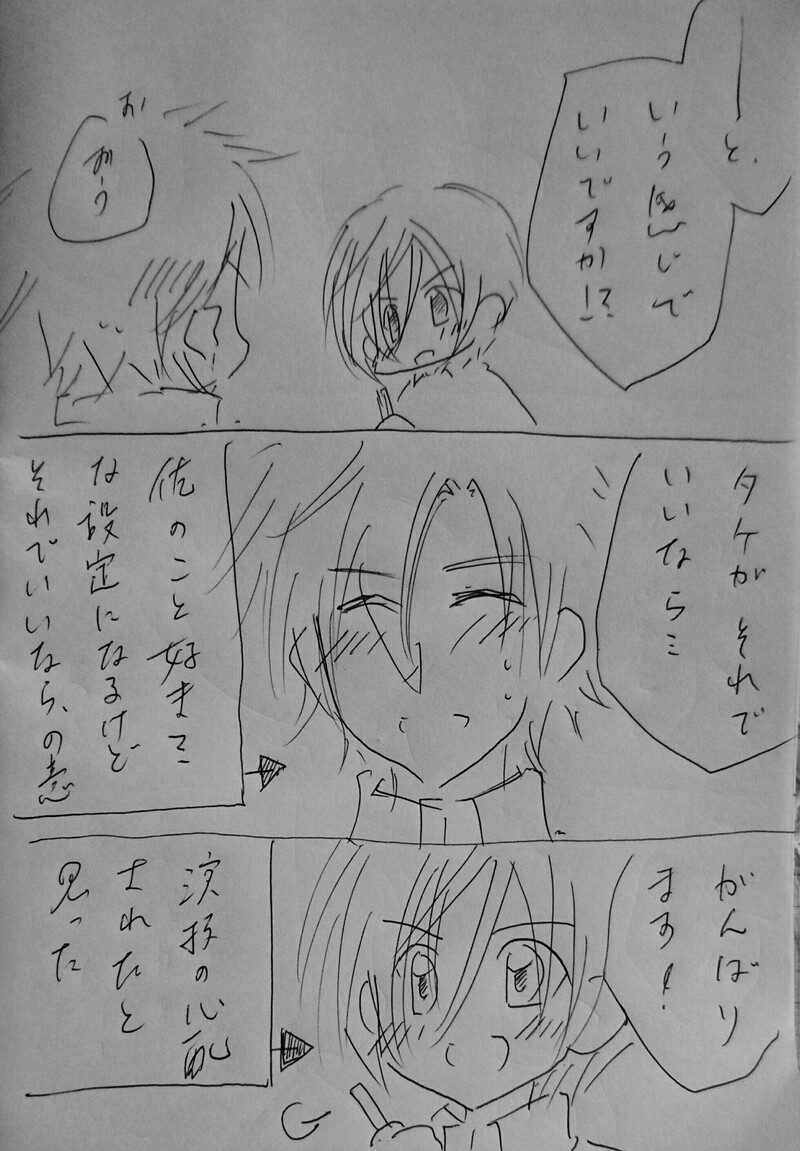 と、
いう感じで
いいですか!?
お
おう
タケがそれで
いいなら…
佐のこと好きみたい
な設定になるけど
それでいいなら、の意
がんばり
ます!
演技の心配
されたと
思った